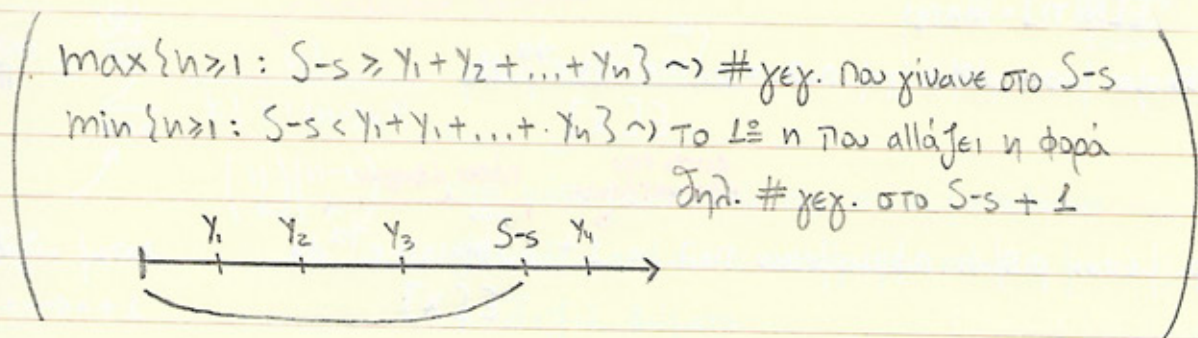 max{n≥1: S-s ≥ Y₁+Y₂+...+Yₙ} ~> # γεγ. που γίνανε στο S-s
min{n≥1: S-s < Y₁+Y₁+...+.Yₙ} ~> το 1º n που αλλάζει η φορά
δηλ. # γεγ. στο S-s + 1
Y₁ Y₂ Y₃ S-s Y₄